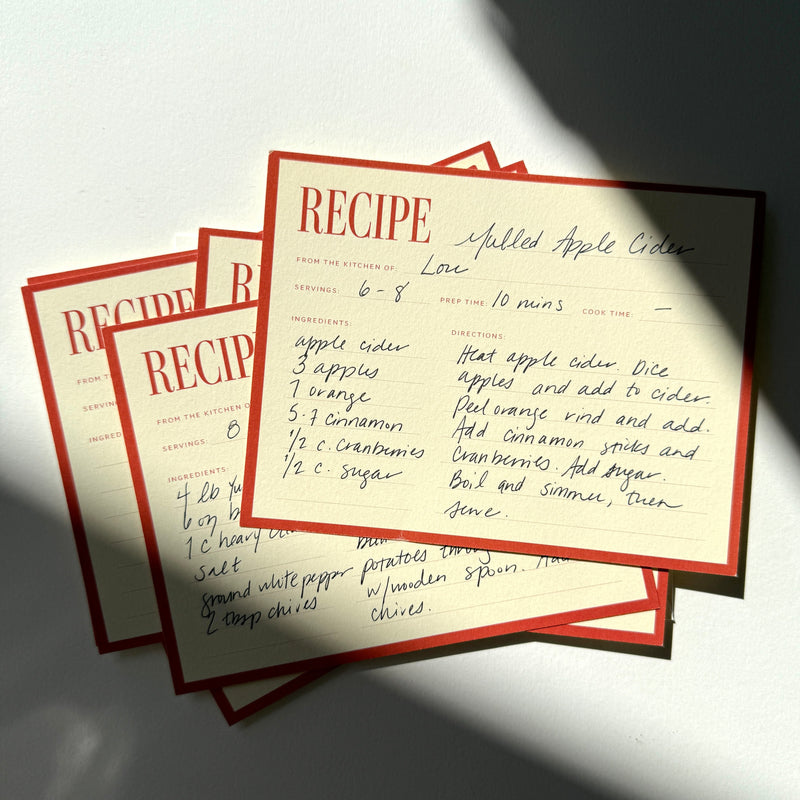 RECIPE Mulled Apple Cider
FROM THE KITCHEN OF: Lou
SERVINGS: 6-8 PREP TIME: 10 mins COOK TIME: —
INGREDIENTS:
apple cider
3 apples
1 orange
5-7 cinnamon
1/2 c. cranberries
1/2 c. sugar
DIRECTIONS:
Heat apple cider. Dice
apples and add to cider.
Peel orange rind and add.
Add cinnamon sticks and
cranberries. Add sugar.
Boil and simmer, then
serve.
RECIP
FROM THE KITCHEN O
SERVINGS: 8
INGREDIENTS:
4 lb Yu
6 oz b
1 c heavy
salt
ground white pepper
2 tbsp chives
potatoes throu
w/wooden spoon. Add
chives.
RE
RECIPE
FROM T
SERVIN
INGRED